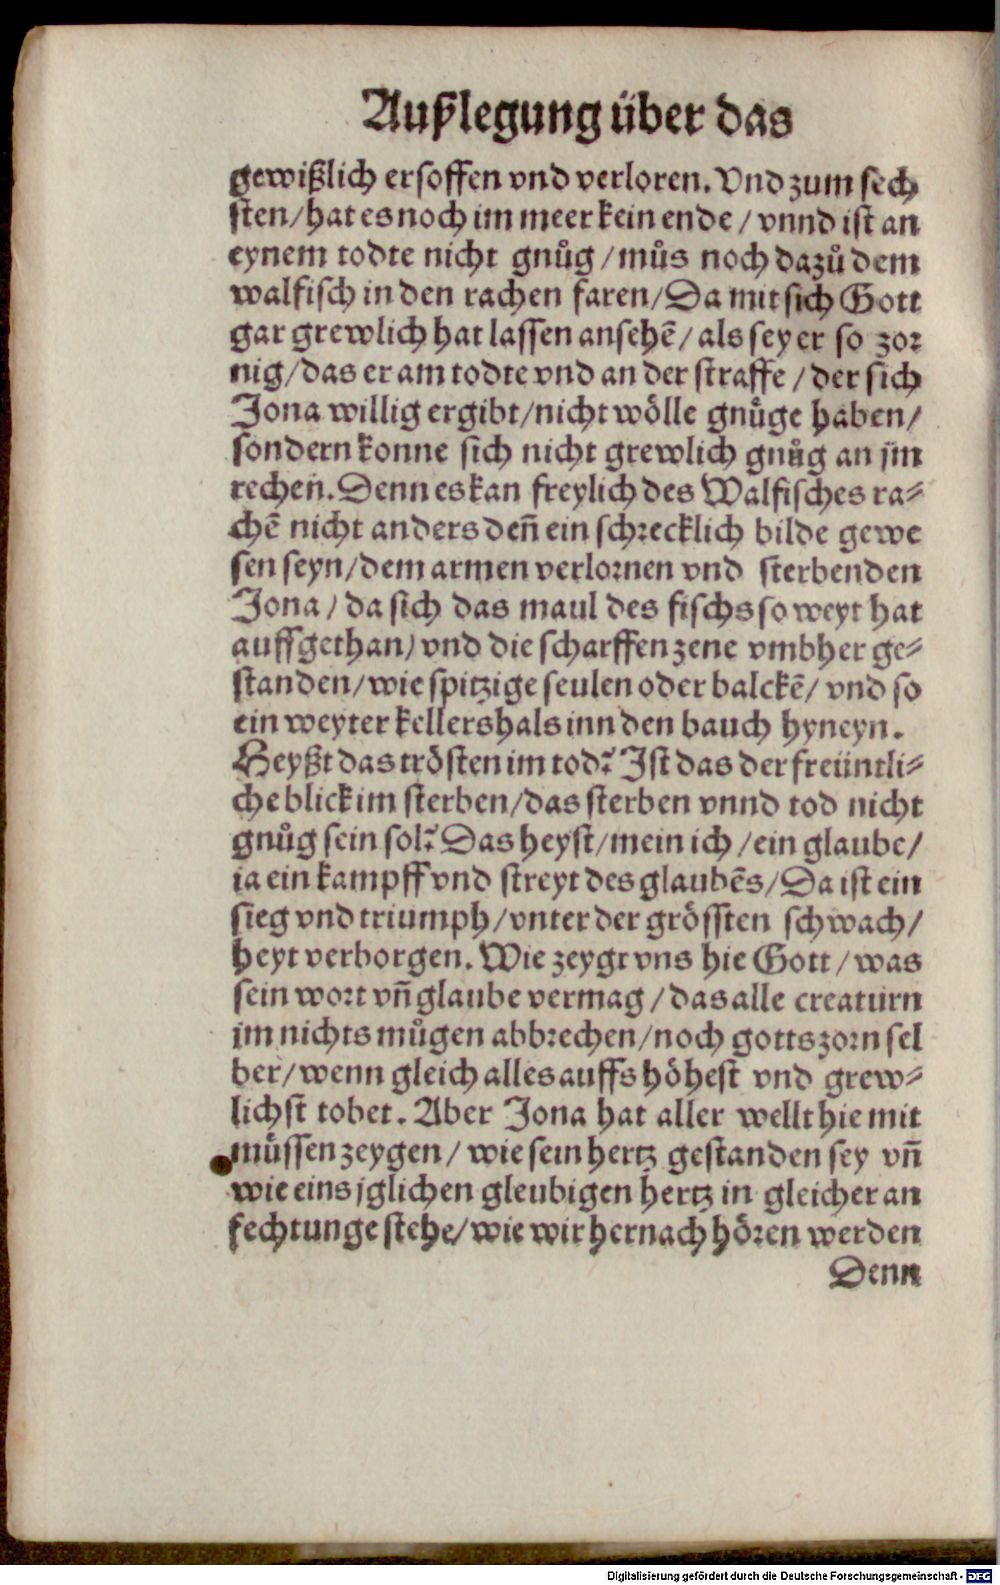 Außlegung über das
gewißlich ersoffen vnd verloren. Vnd zum sech
sten/hat es noch im meer kein ende/vnnd ist an
eynem todte nicht gnůg/můs noch dazů dem
walfisch in den rachen faren/Da mit sich Gott
gar grewlich hat lassen ansehē/als sey er so zor
nig/das er am todte vnd an der straffe/der sich
Jona willig ergibt/nicht wölle gnůge haben/
sondern konne sich nicht grewlich gnůg an jm
rechen. Denn es kan freylich des Walfisches ra-
chē nicht anders deñ ein schrecklich bilde gewe
sen seyn/dem armen verlornen vnd sterbenden
Jona/da sich das maul des fischs so weyt hat
auffgethan/vnd die scharffen zene vmbher ge-
standen/wie spitzige seulen oder balckē/vnd so
ein weyter kellershals inn den bauch hyneyn.
Heyßt das trösten im tod? Ist das der freüntli-
che blick im sterben/das sterben vnnd tod nicht
gnůg sein sol? Das heyst/mein ich/ein glaube/
ia ein kampff vnd streyt des glaubēs/Da ist ein
sieg vnd triumph/vnter der grössten schwach/
heyt verborgen. Wie zeygt vns hie Gott/was
sein wort vñ glaube vermag/das alle creaturn
jm nichts můgen abbrechen/noch gotts zorn sel
ber/wenn gleich alles auffs höhest vnd grew-
lichst tobet. Aber Jona hat aller wellt hie mit
müssen zeygen/wie sein hertz gestanden sey vñ
wie eins jglichen gleubigen hertz in gleicher an
fechtunge stehe/wie wir hernach hören werden
Denn
Digitalisierung gefördert durch die Deutsche Forschungsgemeinschaft - DFG